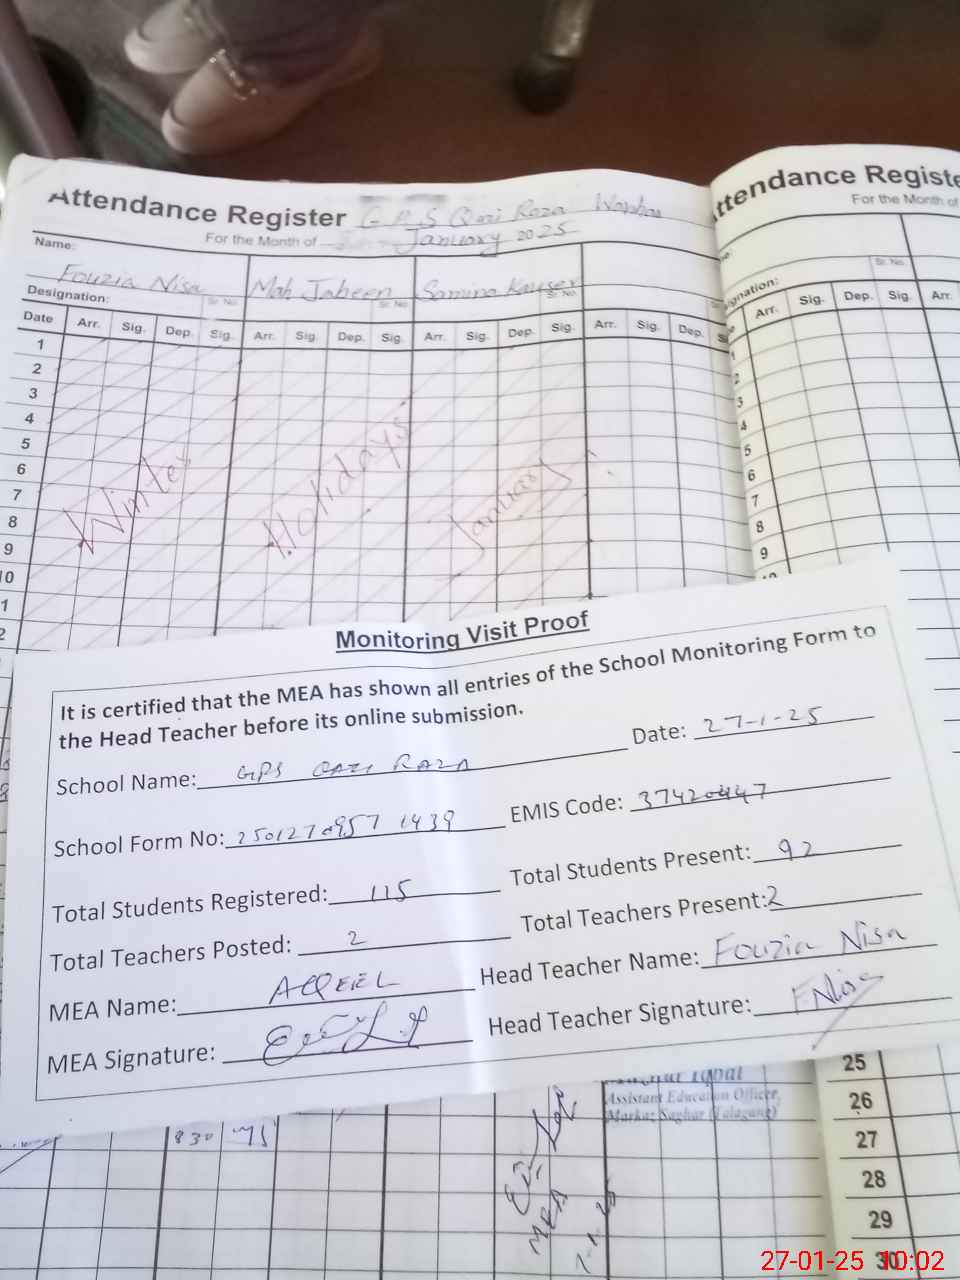 Attendance Register G P S Qazi Raza
For the Month of January 2025
Name:
Fouzia Nisa Mah Jabeen Samina Kauser
Sr. No. Sr. No. Sr. No.
Designation:
Date Arr. Sig. Dep. Sig. Arr. Sig. Dep. Sig. Arr. Sig. Dep. Sig. Arr. Sig. Dep. S
1
2
3
4
5
6
7
8
9
10
1
2
Winter Holidays January
ttendance Registe
For the Month of
Sr. No.
signation:
Arr. Sig. Dep. Sig. Arr.
1
2
3
4
5
6
7
8
9
Monitoring Visit Proof
It is certified that the MEA has shown all entries of the School Monitoring Form to
the Head Teacher before its online submission.
School Name: GPS QAZI RAZA Date: 27-1-25
School Form No: 25012709571439 EMIS Code: 37420447
Total Students Registered: 115 Total Students Present: 92
Total Teachers Posted: 2 Total Teachers Present: 2
MEA Name: AQEEL Head Teacher Name: Fouzia Nisa
MEA Signature: Head Teacher Signature: FNisa
Iqbal
Assistant Education Officer,
Markaz Saghar (Talagang)
830
MEA
25
26
27
28
29
30
27-01-25 10:02